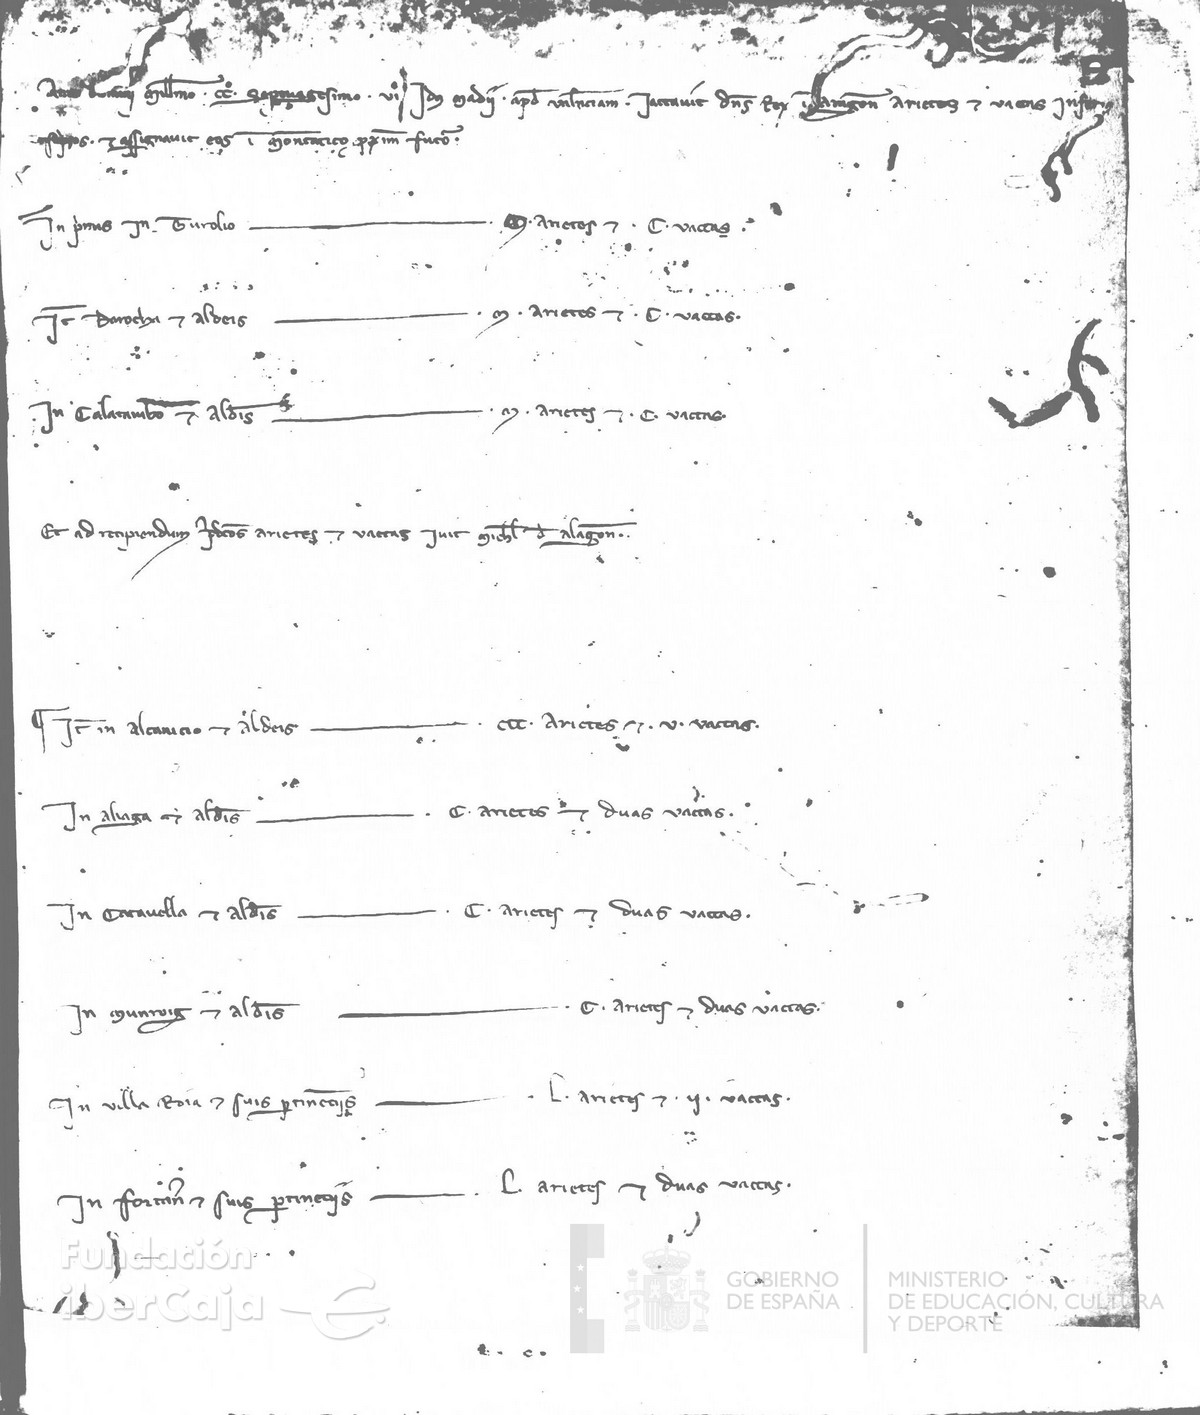 Anno domini Millmo. CCº. Septuagesimo. vi Idus Madii. apd valnciam. Jactavit dns Rex in Aragon Arietes et vacas
et assignavit eos i Montaticis pxim futo.
In pmis In Turolio . M. Arietes et . C. vaccas.
It Darocha et aldeis . M. Arietes et . C. vaccas.
In Calataiubo et aldis . M. Arietes et . C. vaccas.
Et ad recipiendum pdcos arietes et vaccas ivit Michl d alagon.
It in alcanicio et aldeis . CCC. Arietes et . v. vaccas.
In aliaga et aldis . C. arietes et duas vaccas.
In Cantavella et aldis . C. arietes et duas vaccas.
In Munroig et aldis . C. arietes et duas vaccas.
In villa Roia et suis ptinectiis . L. arietes et . ii. vaccas.
In fortan et suis ptinectiis . L. arietes et duas vaccas.
Fundación
iberCaja
GOBIERNO
DE ESPAÑA
MINISTERIO
DE EDUCACIÓN, CULTURA
Y DEPORTE